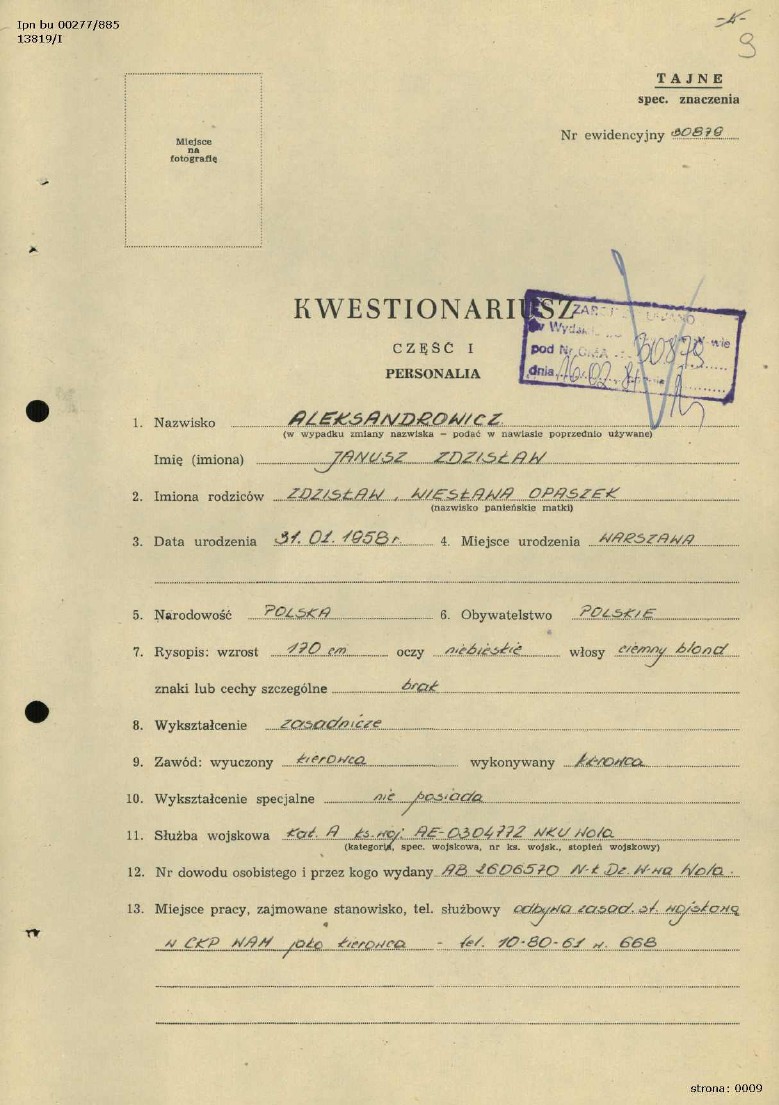 Ipn bu 00277/885
13819/I
-4-
9
TAJNE
spec. znaczenia
Nr ewidencyjny 30879
Miejsce
na
fotografię
KWESTIONARIUSZ
CZĘŚĆ I
PERSONALIA
w Wydziale
pod Nr 30879
dnia 16.02
1. Nazwisko ALEKSANDROWICZ
(w wypadku zmiany nazwiska – podać w nawiasie poprzednio używane)
Imię (imiona) JANUSZ ZDZISŁAW
2. Imiona rodziców ZDZISŁAW, WIESŁAWA OPASZEK
(nazwisko panieńskie matki)
3. Data urodzenia 31.01.1958 r. 4. Miejsce urodzenia WARSZAWA
5. Narodowość POLSKA 6. Obywatelstwo POLSKIE
7. Rysopis: wzrost 170 cm oczy niebieskie włosy ciemny blond
znaki lub cechy szczególne brak
8. Wykształcenie zasadnicze
9. Zawód: wyuczony kierowca wykonywany kierowca
10. Wykształcenie specjalne nie posiada
11. Służba wojskowa kat. A ks. woj. AE-0304772 WKU Wola
(kategoria, spec. wojskowa, nr ks. wojsk., stopień wojskowy)
12. Nr dowodu osobistego i przez kogo wydany AB 2606570 N-k Dz. W-wa Wola.
13. Miejsce pracy, zajmowane stanowisko, tel. służbowy odbywa zasad. sł. wojskową
w CKP WAM jako kierowca - tel. 10-80-61 w. 668
strona: 0009